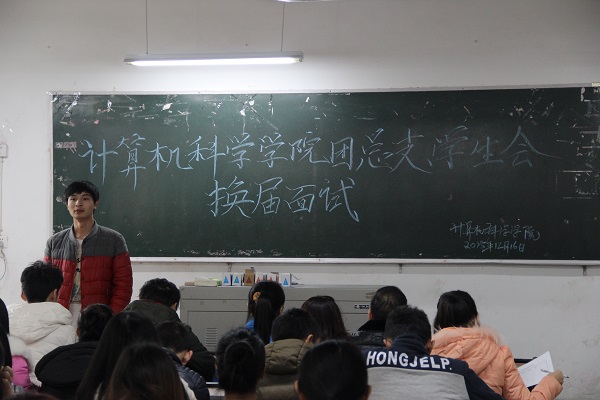 计算机科学学院团总支、学生会
换届面试
计算机科学学院
2015年12月16日
HONGJELP.